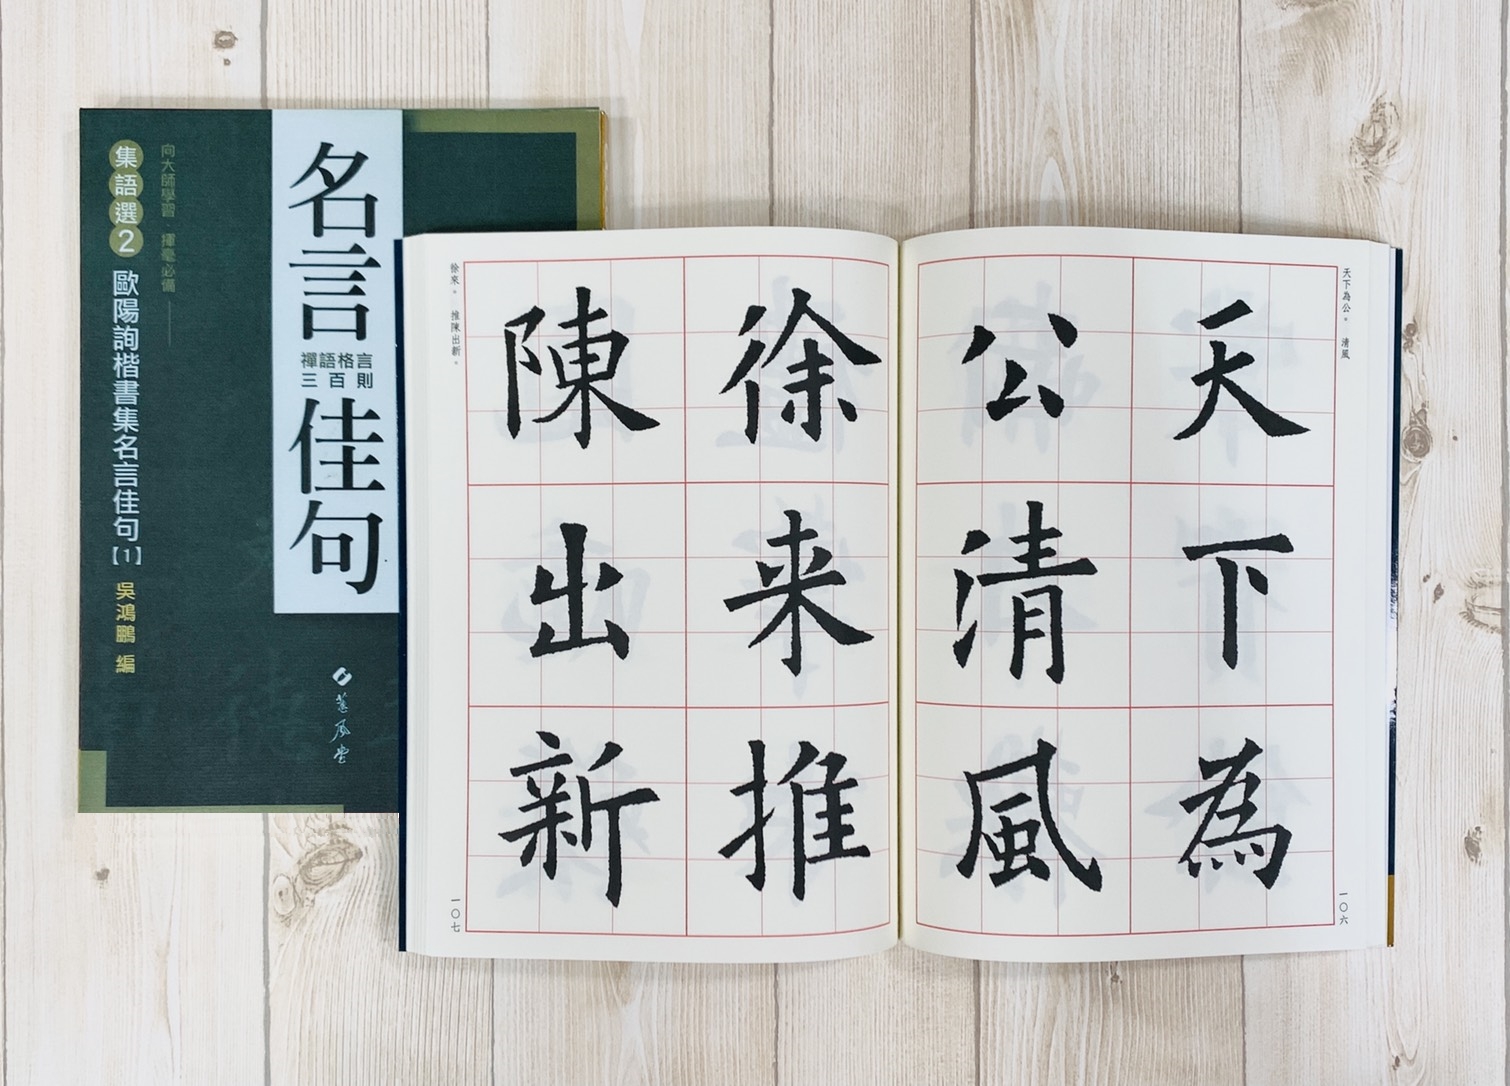 名言佳句
禪語格言
三百則
向大師學習 揮毫必備
集語選2 歐陽詢楷書集名言佳句【1】 吳鴻鵬 編
蕙風堂
天下為公。 清風
天下為
公清風
一〇六
徐来推
陳出新
徐來。 推陳出新。
一〇七